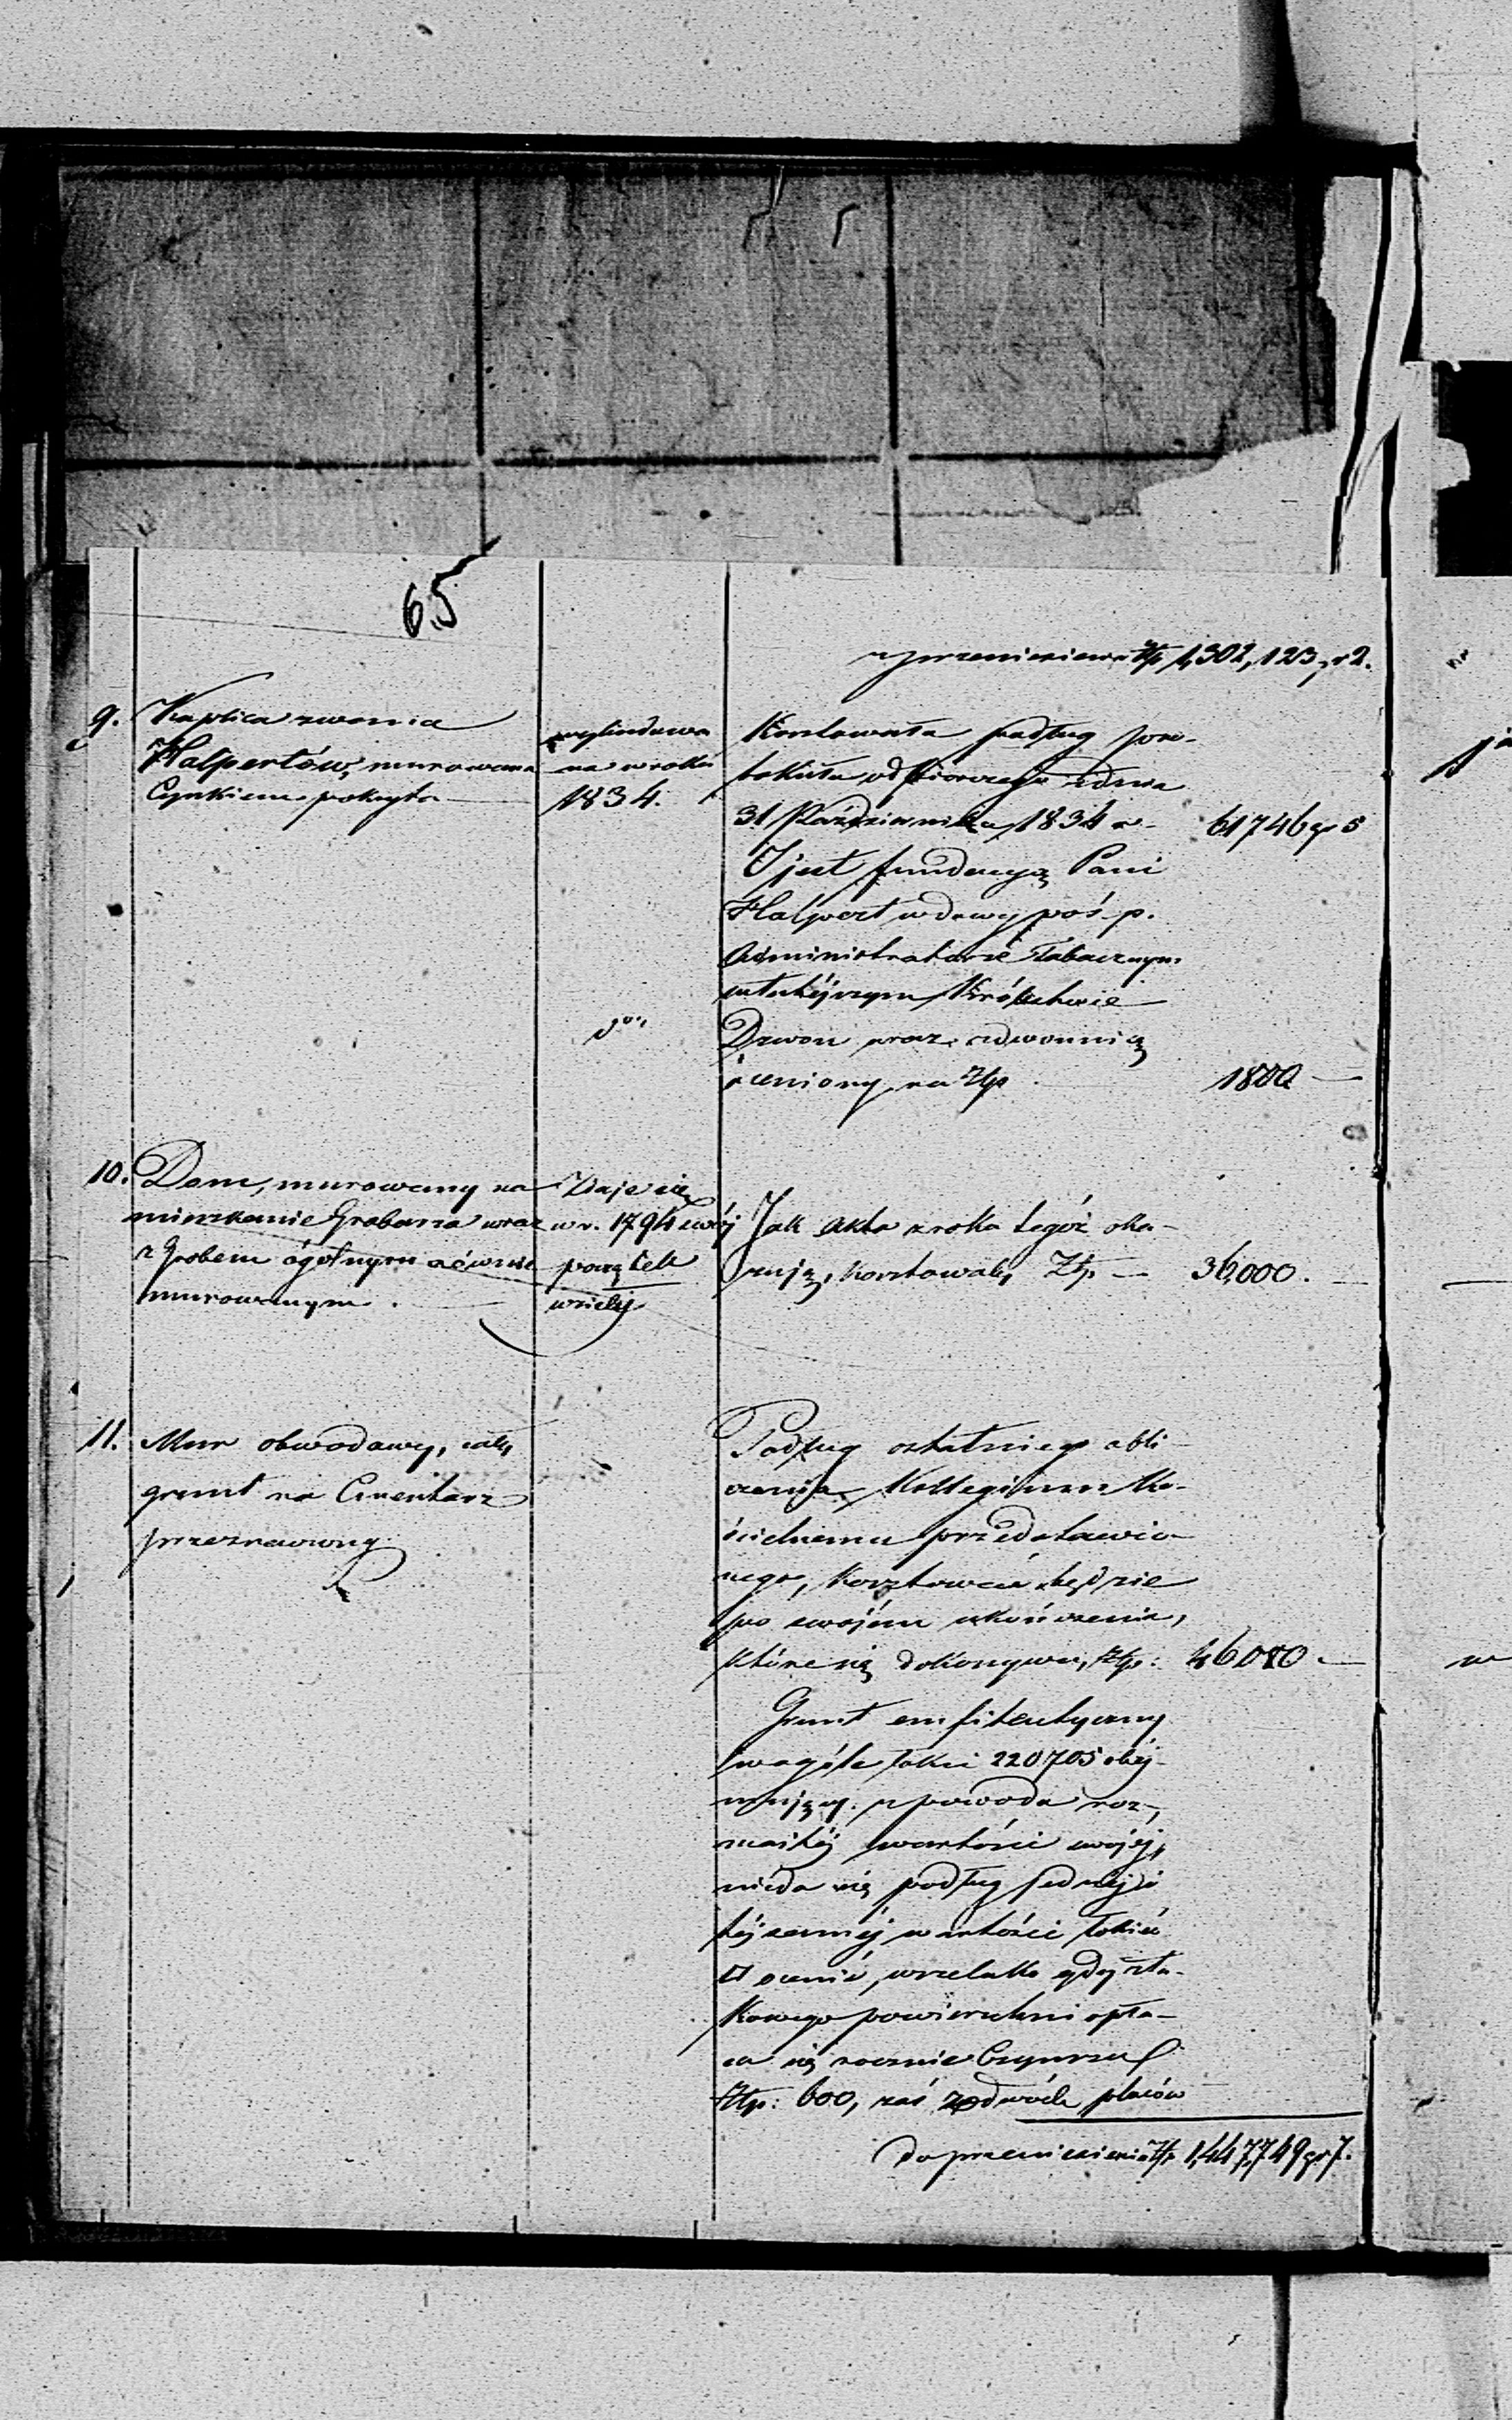 65
z przeniesienia Złp 1,302,123 gr 2.
9. Kaplica zwana
Halpertów, murowana
Cynkiem pokryta
wybudowa
na w roku
1834.
Kosztowała podług pro-
tokułu odbiorczego z dnia
31 Października 1834 r. 61746 gr 5
I jest fundacyą Pani
Halpert wdowy po ś. p.
Administratorze Tabacznym
w tutéjszym Królestwie
don
Dzwon wraz z dzwonnicą
oceniony na Złp 1800 —
10. Dom, murowany na
mieszkanie Grabarza wraz
z Grobem ogólnym równie
murowanym.
Zdaje się
w r. 1794 swój
początek
wzięły
Jak akta z roku tegoż oka-
zują, kosztowały Złp — 36,000.
11. Mur obwodowy, cały
grunt na Cmentarz
przeznaczony
Podług ostatniego obli-
czenia Kollegium Ko-
ścielnemu przedstawio-
nego, kosztować będzie
po swojém ukończeniu,
które się dokonywa, Złp: 46,080 —
Grunt emfiteutyczny
w ogóle łokci 220705 obéj-
mujący. z powodu roz-
maitéj wartości swojéj,
nieda się podług jednéj i
téj saméj wartości łokieć
□ ocenić, wszelako gdy z ta-
kowego powierzchni opła-
ca się rocznie Czynszu
Złp: 600, zaś z dwóch placów
do przeniesienia Złp 1,447,749 gr 7.